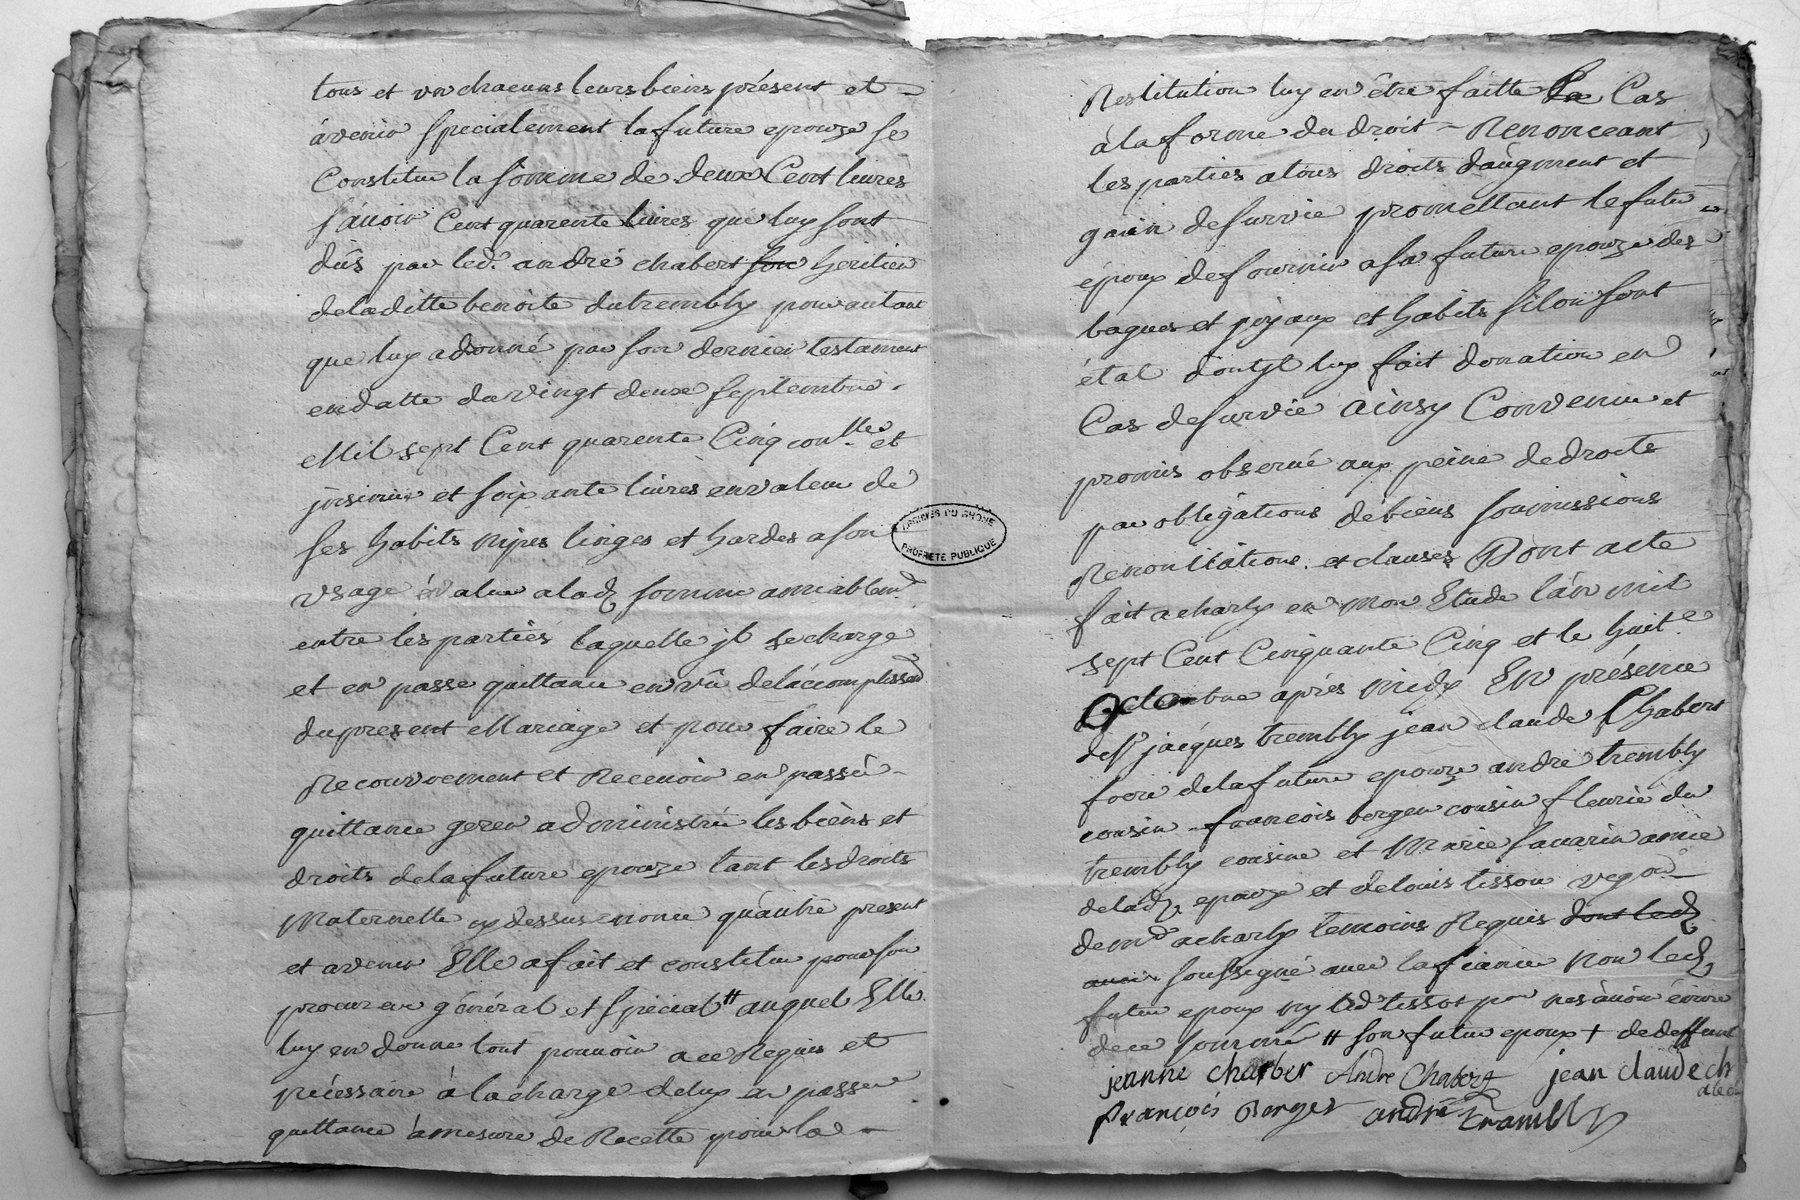 tous et un chacuns leurs biens présent et
àvenir specialement la future epouze se
Constitue la somme de deux Cent livres
sávoir Cent quarente livres que luy sont
dûs par led. andré chabert son heritier
deladitte benoite dutrembly pour autant
que luy a donné par son dernier testament
en datte du vingt deux septembre
Mil sept Cent quarente Cinq conlle et
jnsinué et soixante livres en valeur de
ses habits nipes linges et hardes a son
usage évalué a lad somme amiablemt
entre les parties laquelle jl se charge
et en passe quittance en vû delàcomplissemt
du present Mariage et pour faire le
Recouvrement et Recevoir en passér
quittance gerer administré les biens et
droits de la future epouze tant les droits
Maternelle cy dessus enoncé qu'autre present
et avenir Elle a fait et constitue pour son
procureur général et spécial # auquel Elle
luy en donne tout pouvoir a ce Requis et
nécessaire à la charge deluy en passer
quittance àmesure de Recette pour la
Restitution luy en être faitte Le Cas
à la forme du droit Renonceant
les parties a tous droits daugment et
gain de survie promettant le futur
époux de fournir a sa future epouze des
bagues et joyaux et habits silon sont
état dont jl luy fait donation en
Cas de survie ainsy Convenu et
promis observé aux peine de droits
par obligations de biens soumissions
Renonciations et clauses Dont acte
fait a charly en mon Etude l'an mil
sept Cent Cinquante Cinq et le huite
Octobre après midy En présence
de sr jacques trembly jean claude Chabert
frere dela future epouze andré trembly
cousin francois berger cousin fleurie du
trembly cousine et Marie savarin amie
delad. epouze et de louis tisson
demt a charly temoins Requis dont led
avec soussigné avec la fiancée non led
futur epoux ny led tissot pour ne sávoir écrire
de ce sommé # son futur epoux + de deffunt
jeanne charber Andre Chabert jean claude ch
François Berger andré trambly
ARCHIVES DU RHÔNE
PROPRIÉTÉ PUBLIQUE